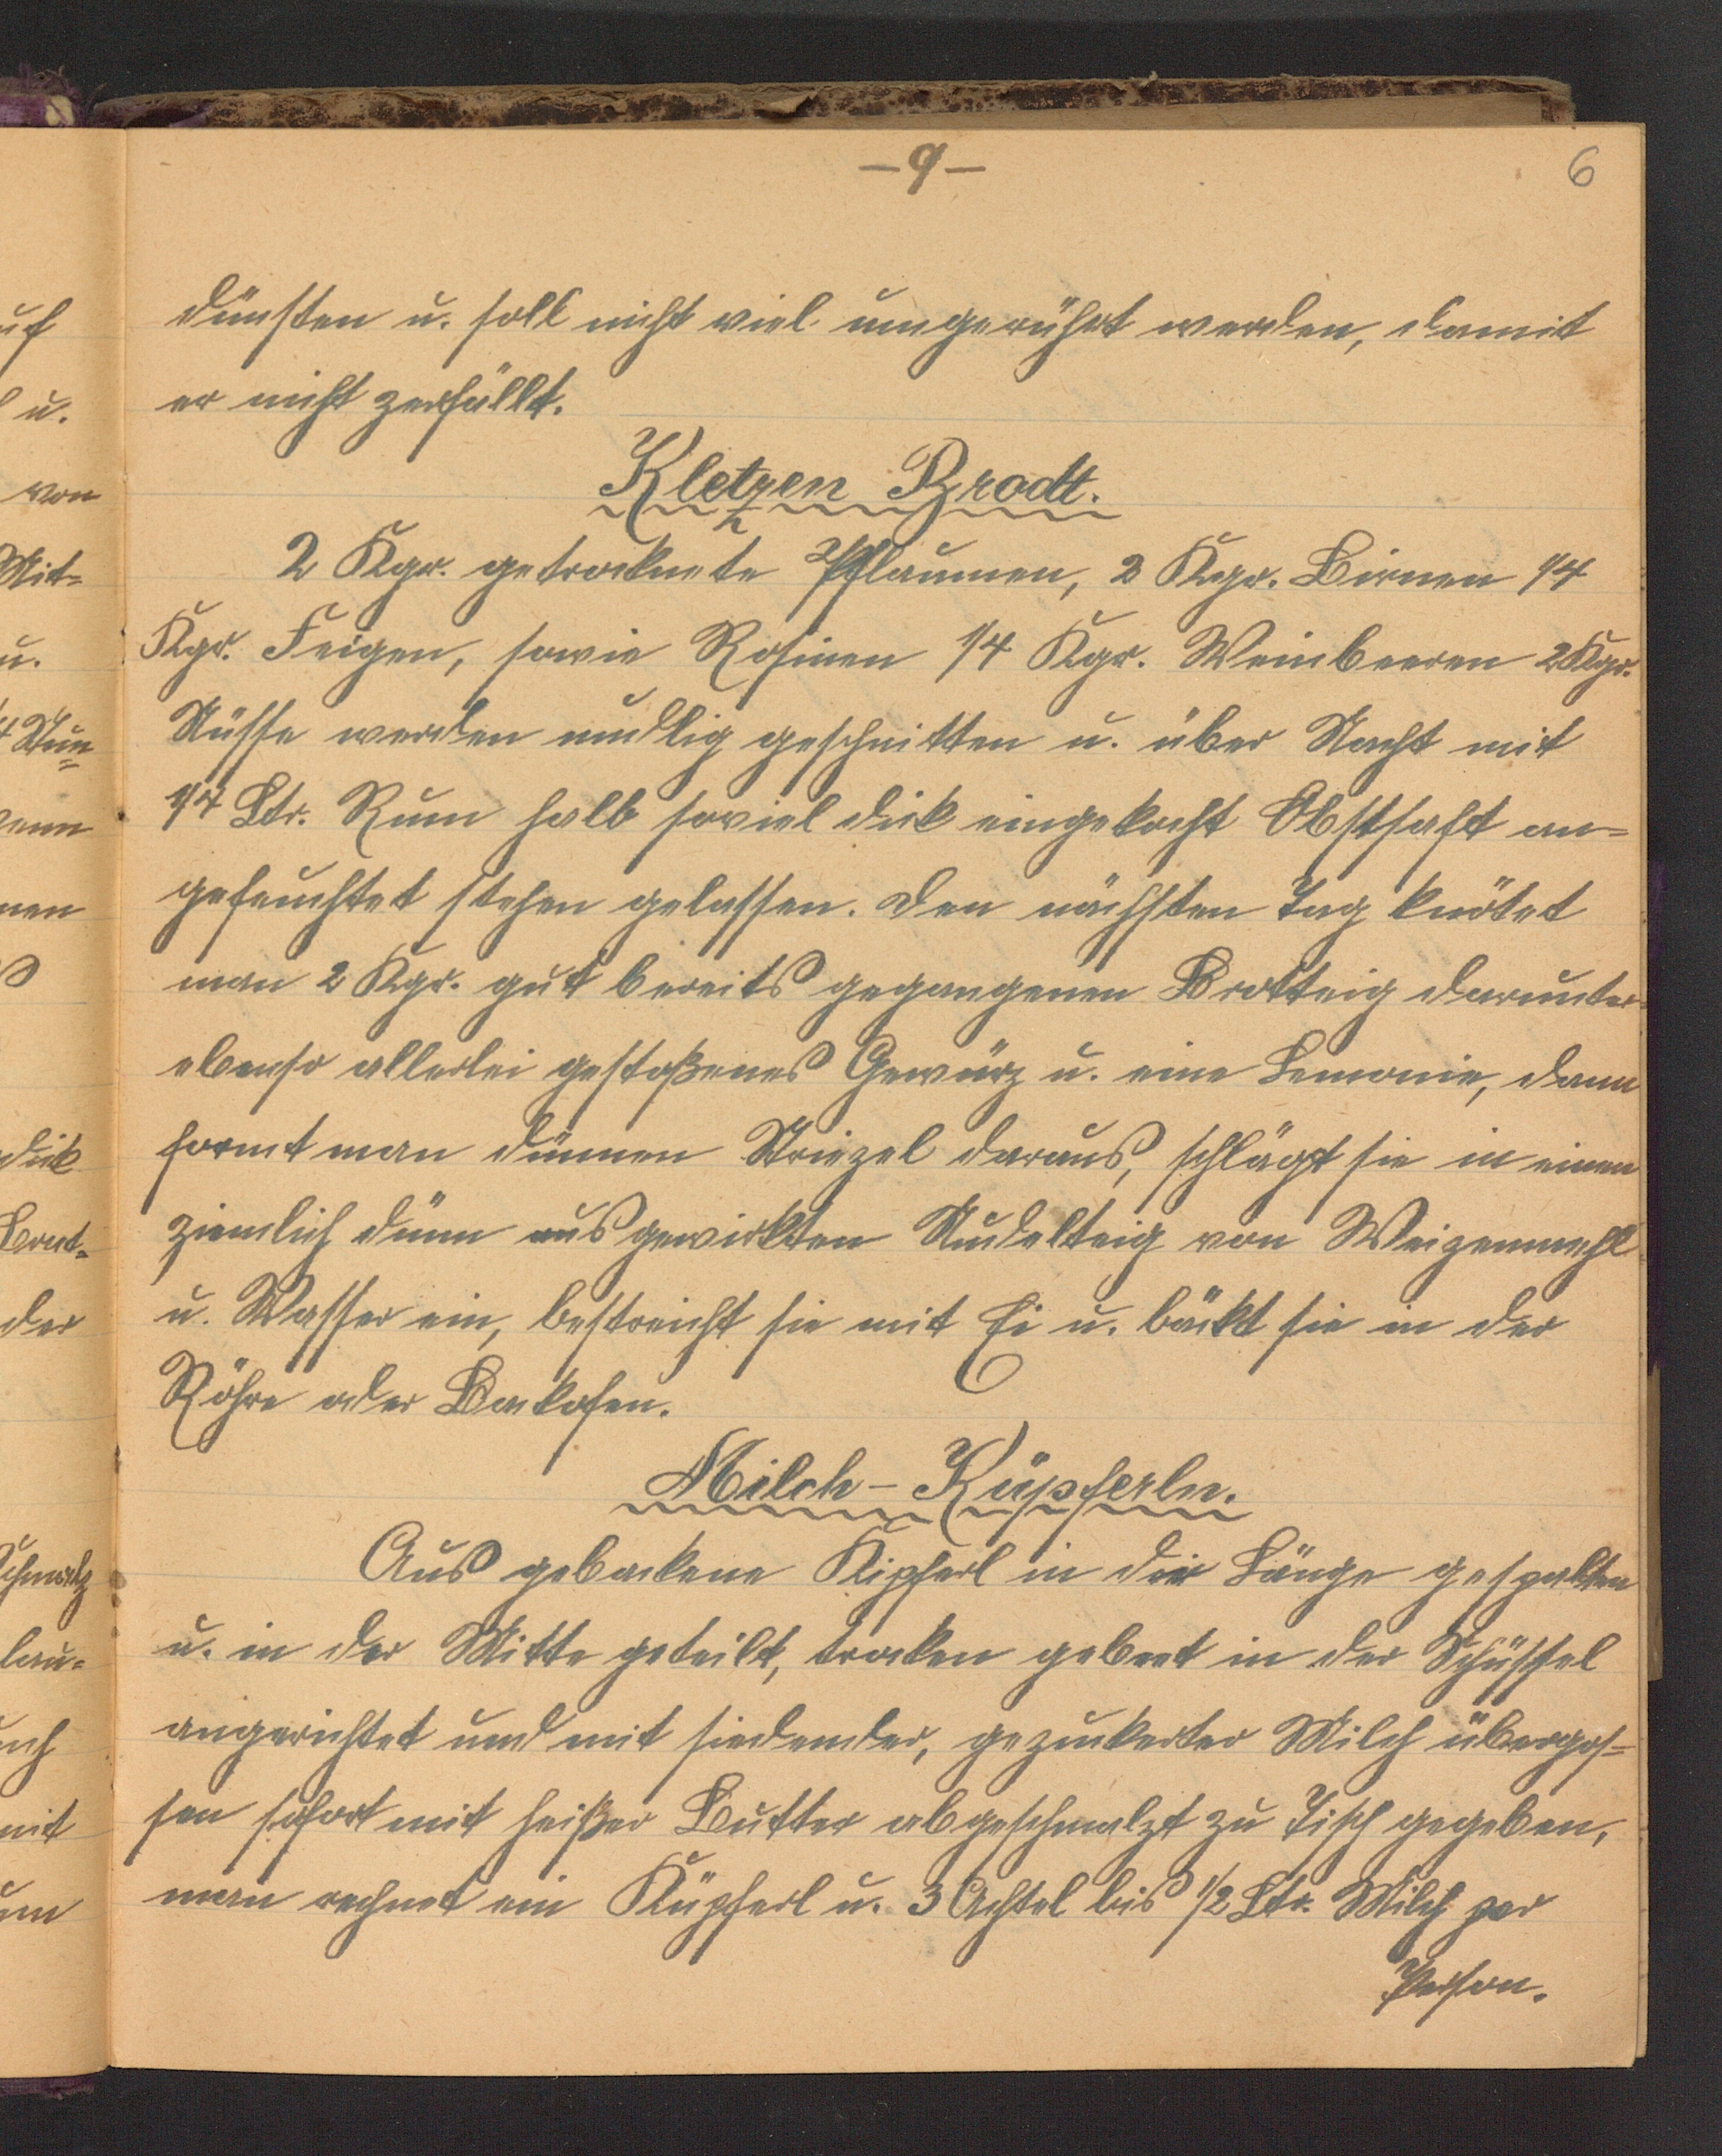 –9–
6
dünsten u. soll nicht viel umgerührt werden, damit
er nicht zerfällt.
Kletzen Brodt.
2 Kgr. getrocknete Pflaumen, 2 Kgr. Birnen 1/4
Kgr. Feigen, sowie Rosinen 1/4 Kgr. Weinbeeren 2 Kgr.
Nüsse werden nudlig geschnitten u. über Nacht mit
1/4 Ltr. Rum halb soviel dick eingekocht Obstsaft an=
gefeuchtet stehen gelassen. Den nächsten Tag knötet
man 2 Kgr. gut bereits gegangenen Brotteig darunter
ebenso allerlei gestoßenes Gewürz u. eine Lemonie, dann
formt man dünnen Striezel daraus, schlägt sie in einen
ziemlich dünn ausgewirkten Nudelteig von Weizenmehl
u. Wasser ein, bestreicht sie mit Ei u. bäckt sie in der
Röhre oder Backofen.
Milch-Küpferln.
Aus gebackene Kipferl in die Länge gespalten
u. in der Mitte geteilt, trocken gebäet in der Schüssel
angerichtet und mit siedender, gezuckerter Milch übergos=
sen sofort mit heißer Butter abgeschmalzt zu Tisch gegeben,
man rechnet ein Küpferl u. 3 Achtel bis 1/2 Ltr. Milch per
Person.
uf
u.
von
Mit=
u.
nen
dick
der
Schmalz
lau=
mit